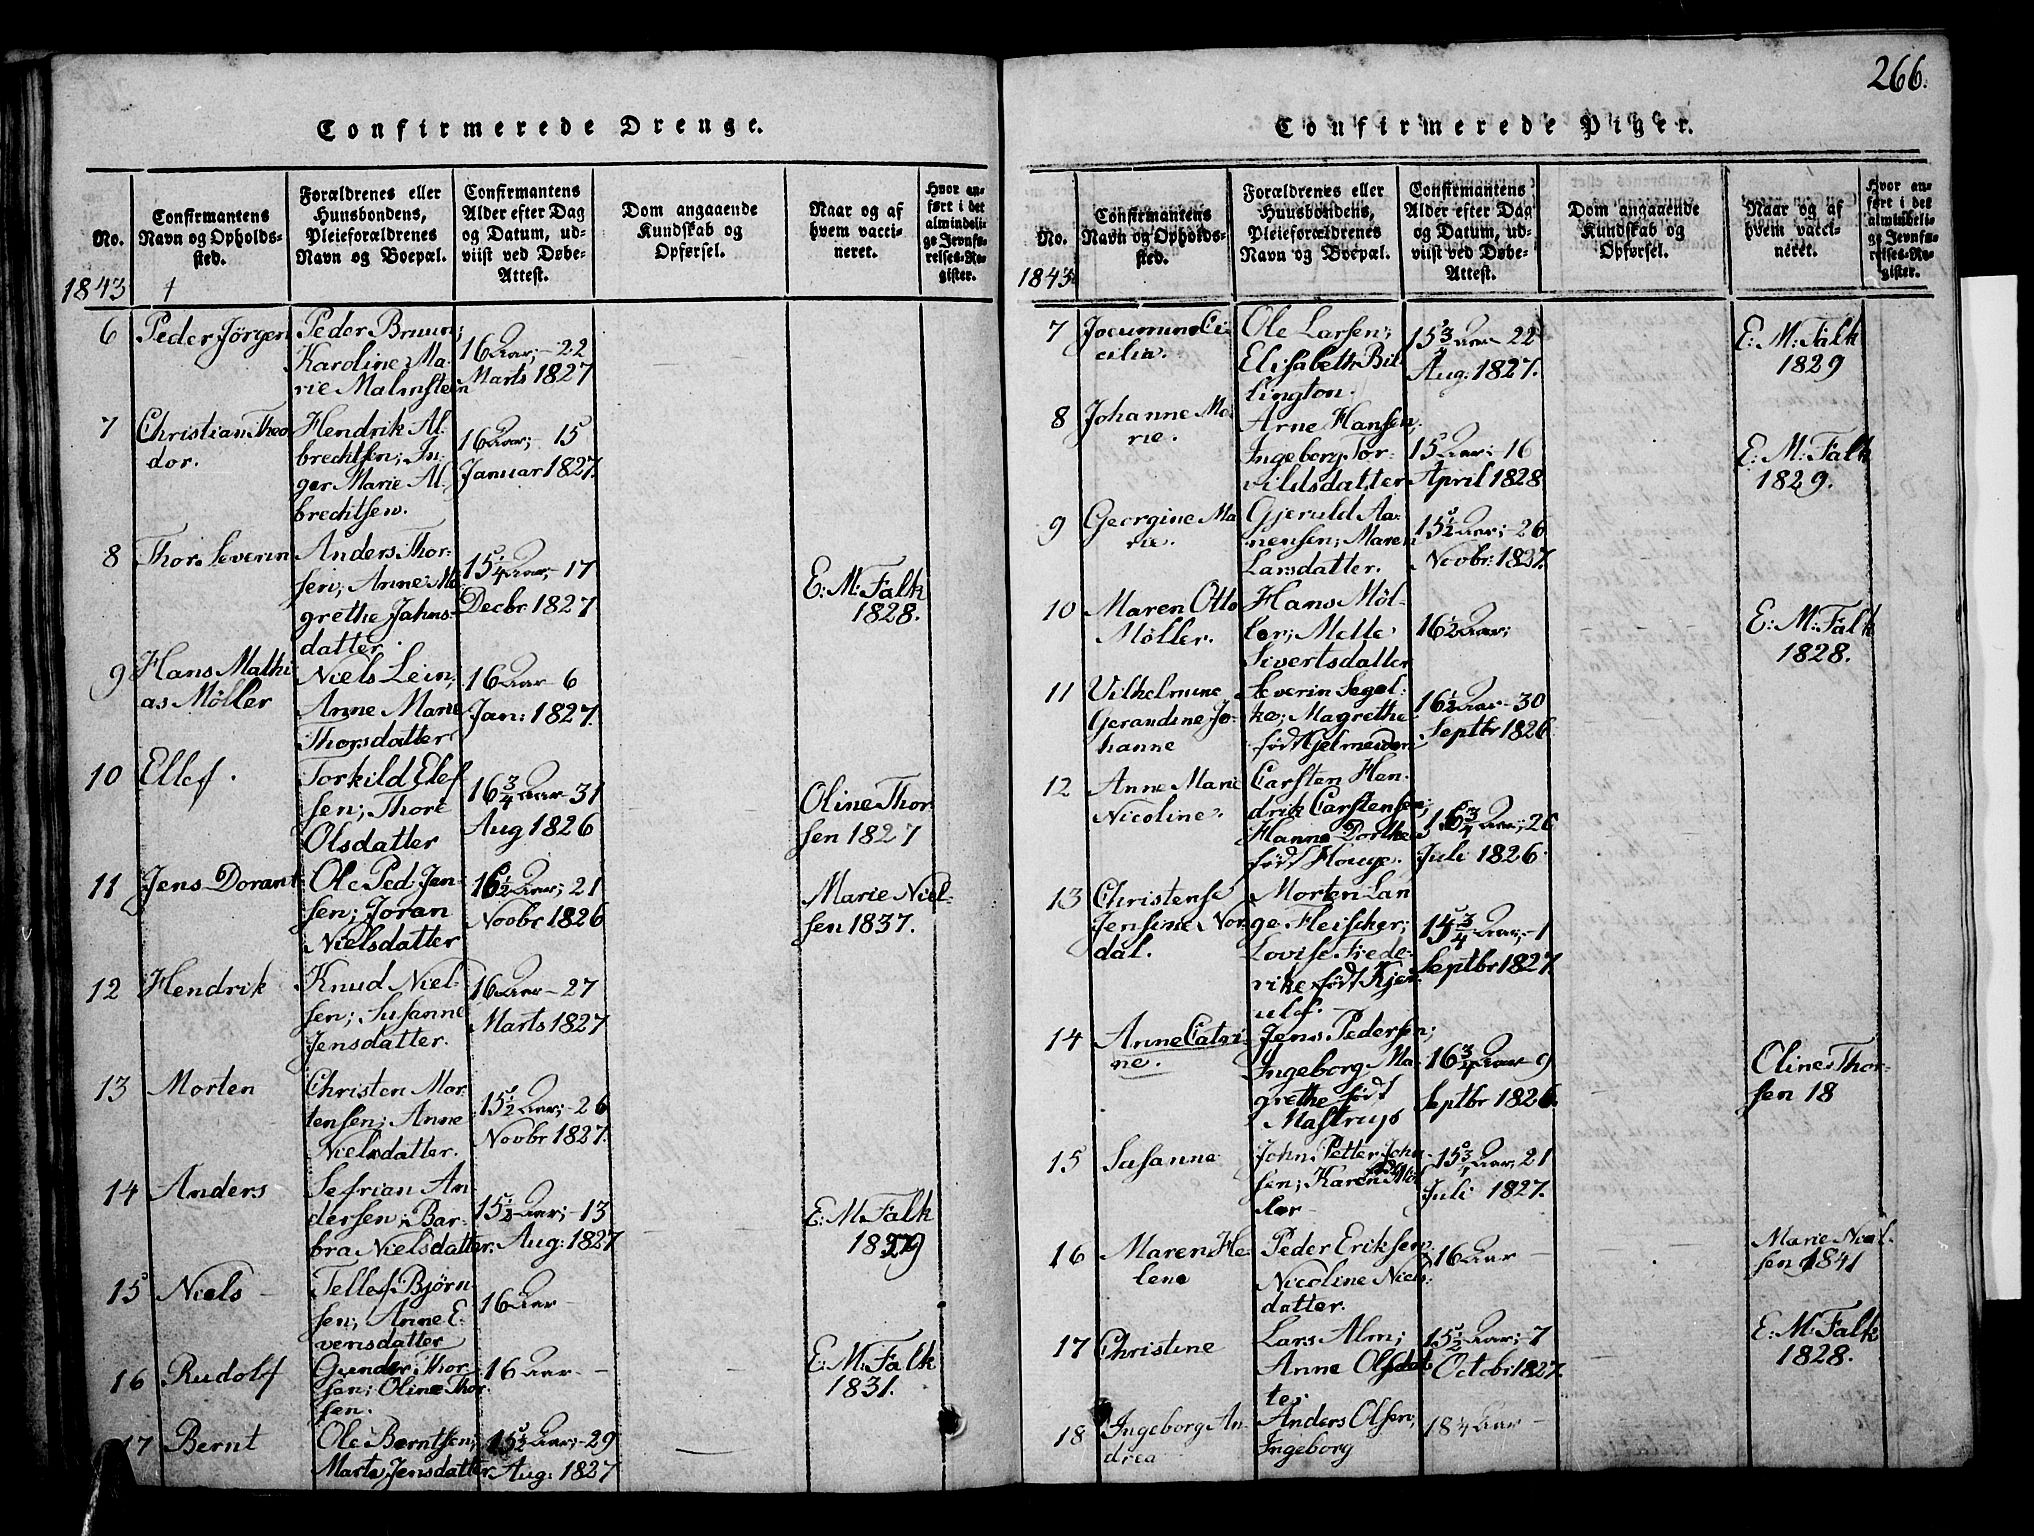 266.
Confirmerede Drenge.
No.
Confirmantens
Navn og Opholds-
sted.
Forældrenes eller
Huusbondens,
Pleieforældrenes
Navn og Boepæl.
Confirmantens
Alder efter Dag
og Datum, ud-
viist ved Døbe-
Attest.
Dom angaaende
Kundskab og
Opførsel.
Naar og af
hvem vacci-
neret.
Hvor an-
ført i det
almindeli-
ge Jevnfø-
relses-Re-
gister.
1843
6
Peder Jörgen
Peder Bruun;
Karoline Ma-
rie Malmstein
16 Aar; - 22
Marts 1827
7
Christian Theo
dor.
Hendrik Al-
brechtsen; In-
ger Marie Al-
brechtsen.
16 Aar; - 15
Januar 1827.
8
Thor Severin
Anders Thor-
sen; Anne Ma
grethe Jahns-
datter.
15 1/4 Aar; - 17
Decbr 1827
E: M: Falk
1828.
9
Hans Mathi
as Möller
Niels Lein;
Anne Marie
Thorsdatter
16 Aar - 6
Jan: 1827.
10
Ellef.
Torkild Elef
sen; Thore
Olsdatter
16 3/4 Aar - 31
Aug 1826
Oline Thor
sen 1827
11
Jens Dorant
Ole Ped Jen-
sen; Joran
Nielsdatter
16 1/2 Aar; 21
Novbr 1826
Marie Niel-
sen 1837.
12
Hendrik
Knud Niel-
sen; Susanne
Jensdatter.
16 Aar - 27
Marts 1827
13
Morten
Christen Mor-
tensen; Anne
Nielsdatter.
15 1/2 Aar; - 26
Novbr 1827.
14
Anders
Sefrian An
dersen; Bar-
bra Nielsdatter.
15 1/2 Aar; - 13
Aug: 1827
E: M: Falk
15
Niels
Tellef Björn
sen; Anne E-
vensdatter
16 Aar -
16
Rudolf
Gunder Thor-
sen; Oline Thor-
sen.
16 Aar -
E: M: Falk
1831.
17
Bernt
Ole Berntsen;
Marta Jensdatter
15 1/2 Aar; - 29
Aug: 1827
Confirmerede Piger.
No.
Confirmantens
Navn og Opholds-
sted.
Forældrenes eller
Huusbondens,
Pleieforældrenes
Navn og Boepæl.
Confirmantens
Alder efter Dag
og Datum, ud-
viist ved Døbe-
Attest.
Dom angaaende
Kundskab og
Opførsel.
Naar og af
hvem vacci-
neret.
Hvor an-
ført i det
almindeli-
ge Jevnfø-
relses-Re-
gister.
1843
7
cilia.
Ole Larsen;
Elisabeth Bil
lington.
15 3/4 Aar - 22
Aug: 1827.
E: M: Falk
1829
8
Johanne Ma
rie.
Arne Hansen;
Ingeborg Tor-
kildsdatter
15 Aar; - 16
April 1828
E: M: Falk
1829.
9
Georgine Ma
rie.
Gjeruld Aa-
nensen; Maren
Larsdatter.
15 1/2 Aar; - 26
Novbr: 1827.
10
Maren Otto
Möller.
Hans Möl-
ler; Mette
Sivertsdatter
16 1/2 Aar;
E: M: Falk
1828.
11
Vilhelmine
Gerandine Jo-
hanne
Severin Segel-
ke; Magrethe
født
16 1/2 Aar - 30
Septbr 1826
12
Anne Marie
Nicoline
Carsten Hen-
drik Carstensen;
Hanne Dorthea
født Houge.
16 3/4 Aar; 26
Juli 1826.
13
Christense
Jensine Nor-
dal.
Morten Lan
ge Fleischer;
Lovise Frede-
rike født Kjer-
ulf.
15 3/4 Aar; - 1
Septbr 1827.
14
Anne Catri
ne.
Jens Pedersen;
Ingeborg Ma-
grethe født
Mastrup
16 3/4 Aar 9
Septbr 1826.
Oline Thor-
sen 18
15
Susanne
John Petter John
sen; Karen født Möl
ler
15 3/4 Aar; 21
Juli 1827.
16
Maren He-
lene
Peder Eriksen
Nicoline Niels-
datter.
16 Aar -
Marie Niel-
sen 1841
17
Christine
Lars Alm;
Anne Olsdat
ter
15 1/2 Aar; - 7
Octobr 1827.
E: M: Falk
1828.
18
Ingeborg An
drea
Anders Olsen;
Ingeborg
18 1/4 Aar -